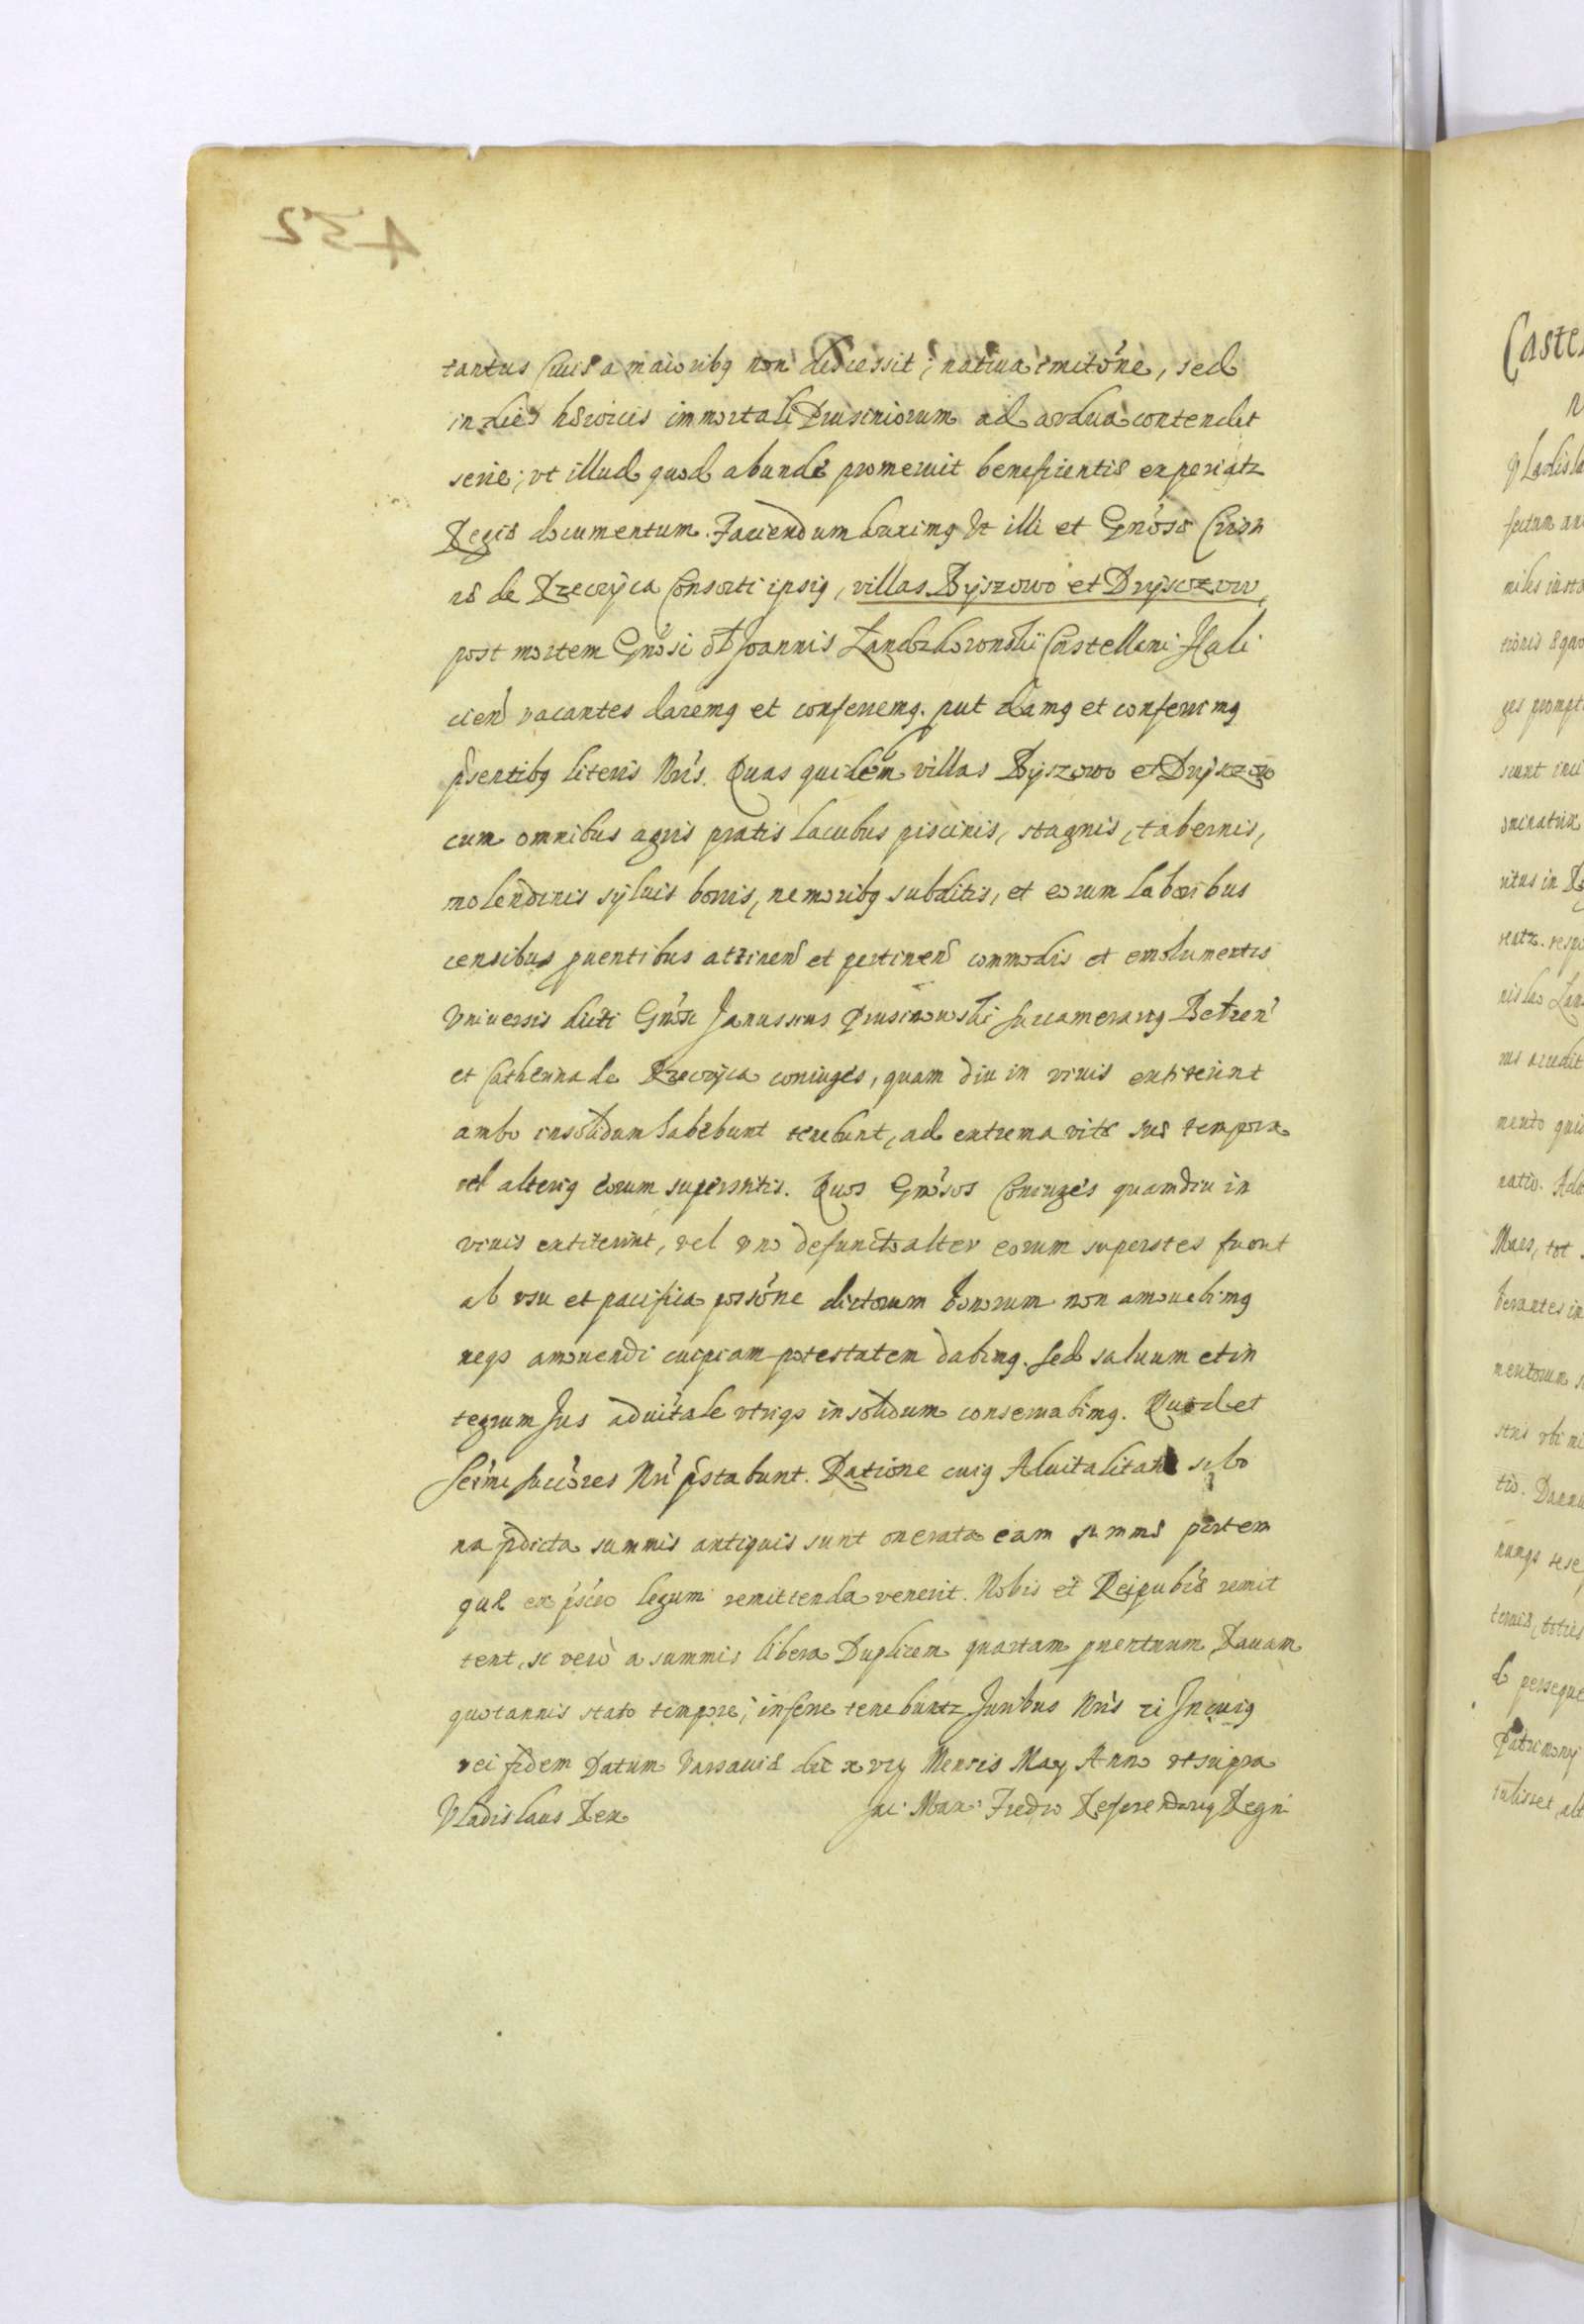 452
tantus Ciuis a maioribq non discessit; natiua imitõne, sed
in dies heroicis immortali Prusiniorum ad ardua contendit
serie; vt illud quod abunde promeruit beneficientis experiatz
Regis documentum. Faciendum duximq Vt illi et Gnose
de Rzeczÿca Consorti ipsiq, villas Bÿszowo et Drÿsczow,
post mortem Gnosi ol Joannis Lanckoronskii Castellani Hali
cien vacantes daremq et conferremq. put damq et conferimq
pñsentibq literis Nris. Quas quidem villas Bÿszowo et Drÿsczow
cum omnibus agris pratis lacubus piscinis, stagnis, tabernis,
molendinis sÿluis borris, nemoribq subditis, et eorum laboribus
censibus puentibus attinen et pertinen commodis et emolumentis
Vniuersis dicti Gnosi Janussius Prusinowski Succamerariq Belzen
et Catherina de Rzeczÿca coniuges, quam diu in viuis extiterint
ambo insolidum habebunt tenebunt, ad extrema vite sue tempora
vel alteriq eorum superstitis. Quos Gnosos Coniuges quamdiu in
viuis extiterint, vel vno defuncto alter eorum superstes fuerit
ab vsu et pacifica possone dictorum bonorum non amouebimq
neqs amouendi cuipiam potestatem dabimq. sed saluum et in
tegrum Jus aduitale vtriqs insolidum conseruabimq. Quod et
Sermi succores Nri pstabunt. Ratione cuiq Aduitalitatis si bo
na pdicta summis antiquis sunt onerata eam summe partem
que ex pscro legum remittenda venerit. Nobis et Reipubce remit
tent, si vero a summis libera Duplicem quartam puentuum Rauam
quotannis stato tempore; inferre tenebuntz Juribus Nris In cuiq
rei fidem Datum Varsauie die xvij Mensis Maij Anno vt supra
Vladislaus Rex Jac: Max: Fredro Referendariq Regni